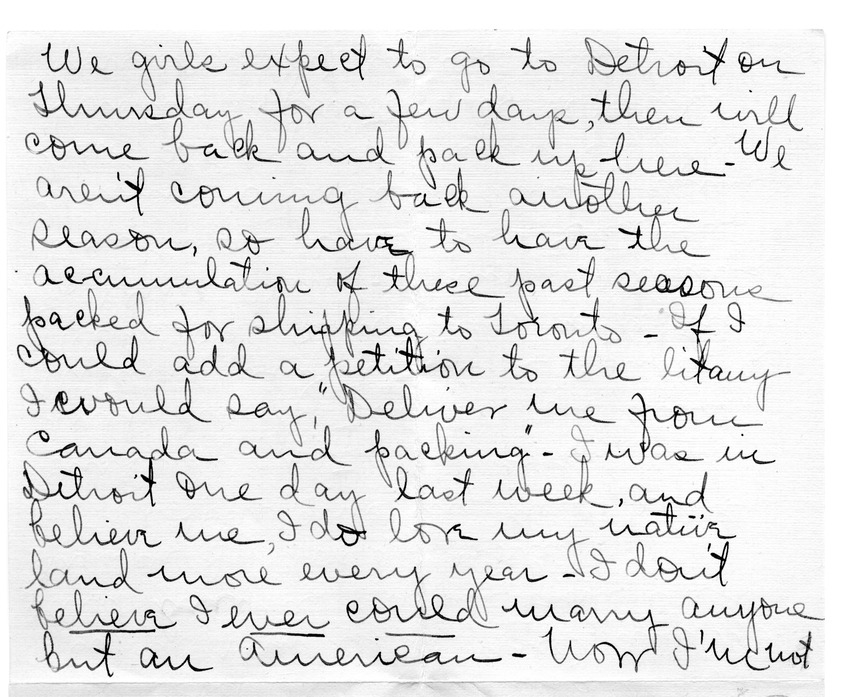 We girls expect to go to Detroit on
Thursday for a few days, then will
come back and pack up here - We
aren't coming back another
season, so have to have the
accumulation of these past seasons
packed for shipping to Toronto - If I
could add a petition to the litany
I would say, "Deliver me from
Canada and packing" - I was in
Detroit one day last week, and
believe me, I do love my native
land more every year - I don't
believe I ever could marry anyone
but an American - Now I'm not